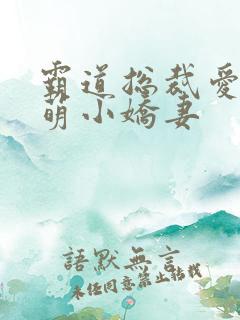 霸道总裁爱
萌小嬌妻
語默無言
未经同意禁止转载